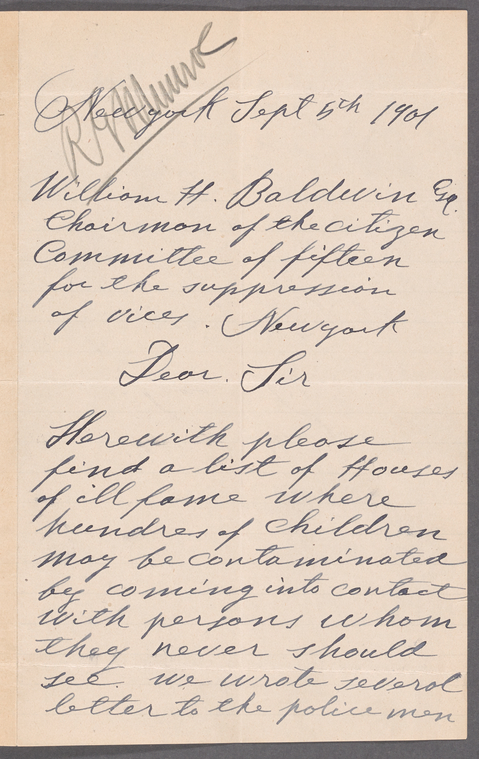 R. G. Monroe
Newyork Sept 5th 1901
William H. Baldwin Esq.
Chairman of the citizen
Committee of fifteen
for the suppression
of vices. Newyork
Dear. Sir
Herewith please
find a list of Houses
of ill fame where
hundres of children
may be contaminated
by coming into contact
with persons whom
they never should
see. we wrote several
letter to the police men